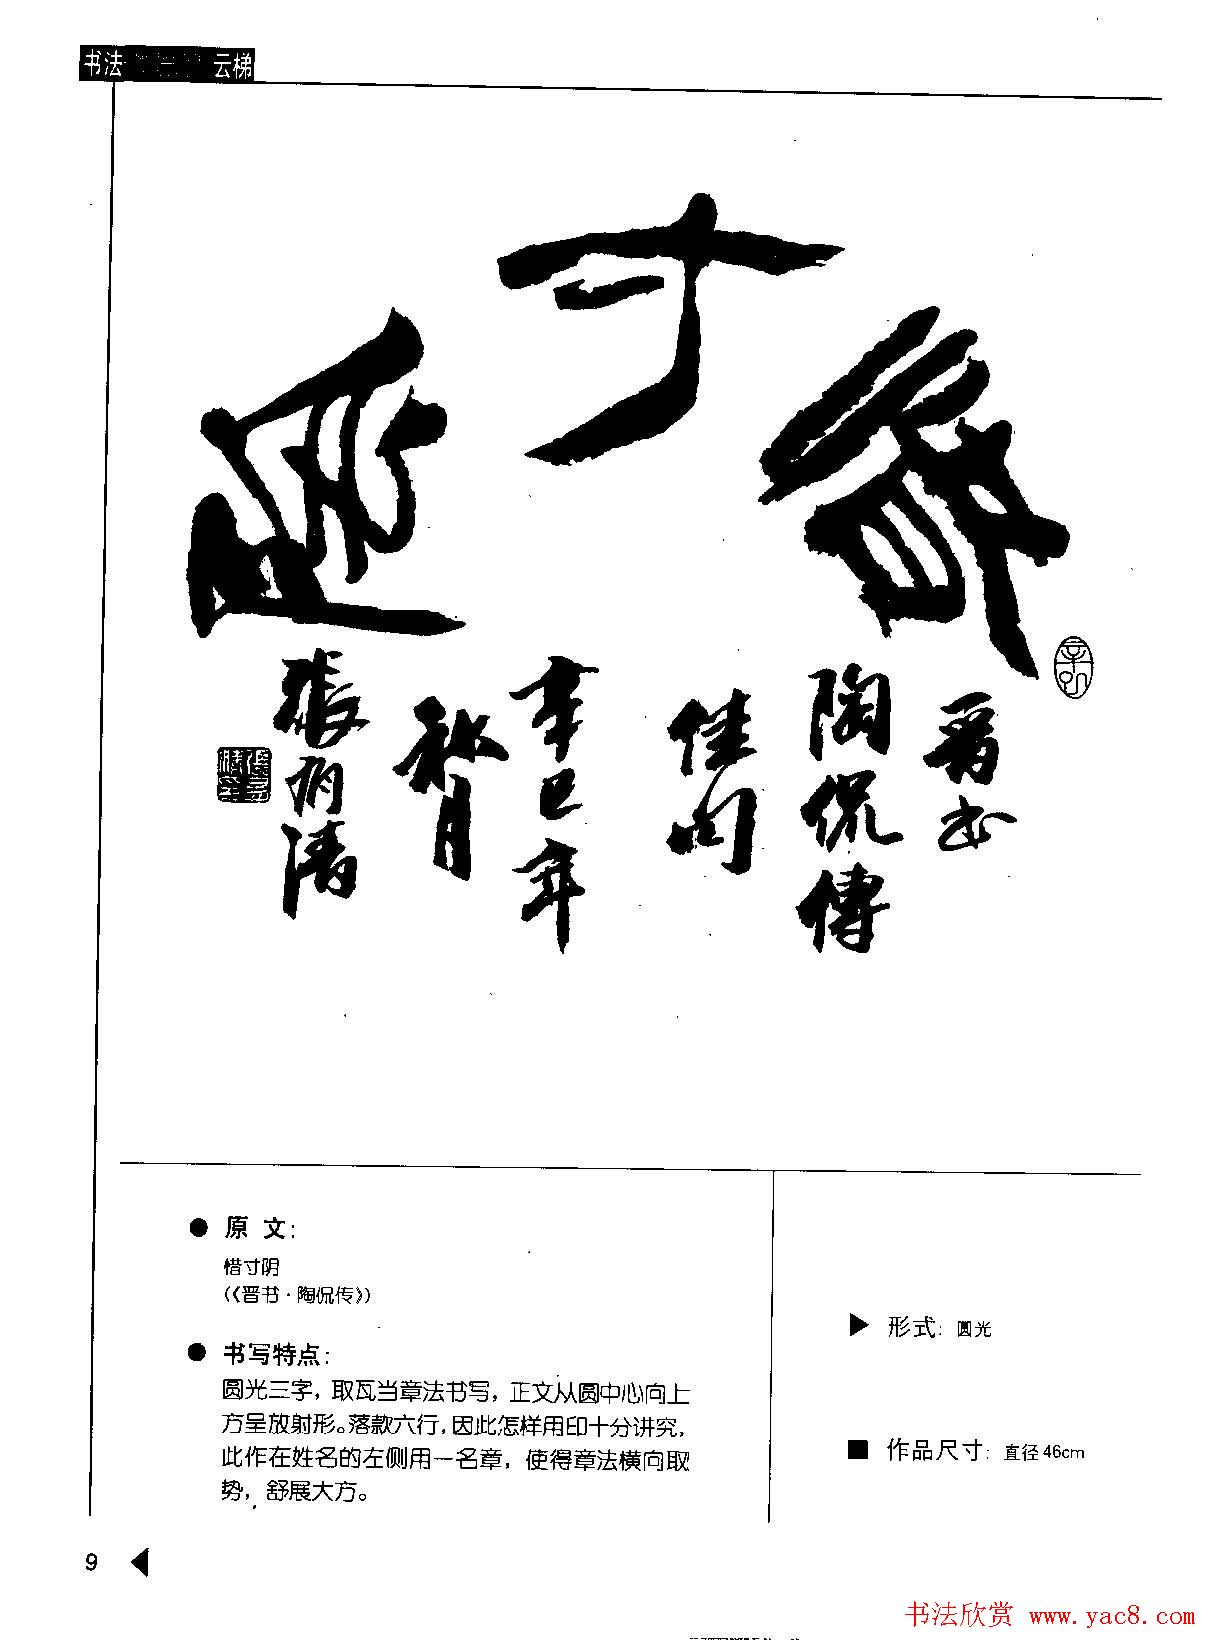 书法 三 云梯
惜寸陰
晋书
陶侃傳
佳句
辛巳年
秋月
張炳清
● 原 文:
惜寸阴
(《晋书·陶侃传》)
● 书写特点:
圆光三字，取瓦当章法书写，正文从圆中心向上
方呈放射形。落款六行，因此怎样用印十分讲究，
此作在姓名的左侧用一名章，使得章法横向取
势，舒展大方。
▶ 形式: 圆光
■ 作品尺寸: 直径46cm
9 ◀
书法欣赏 www.yac8.com